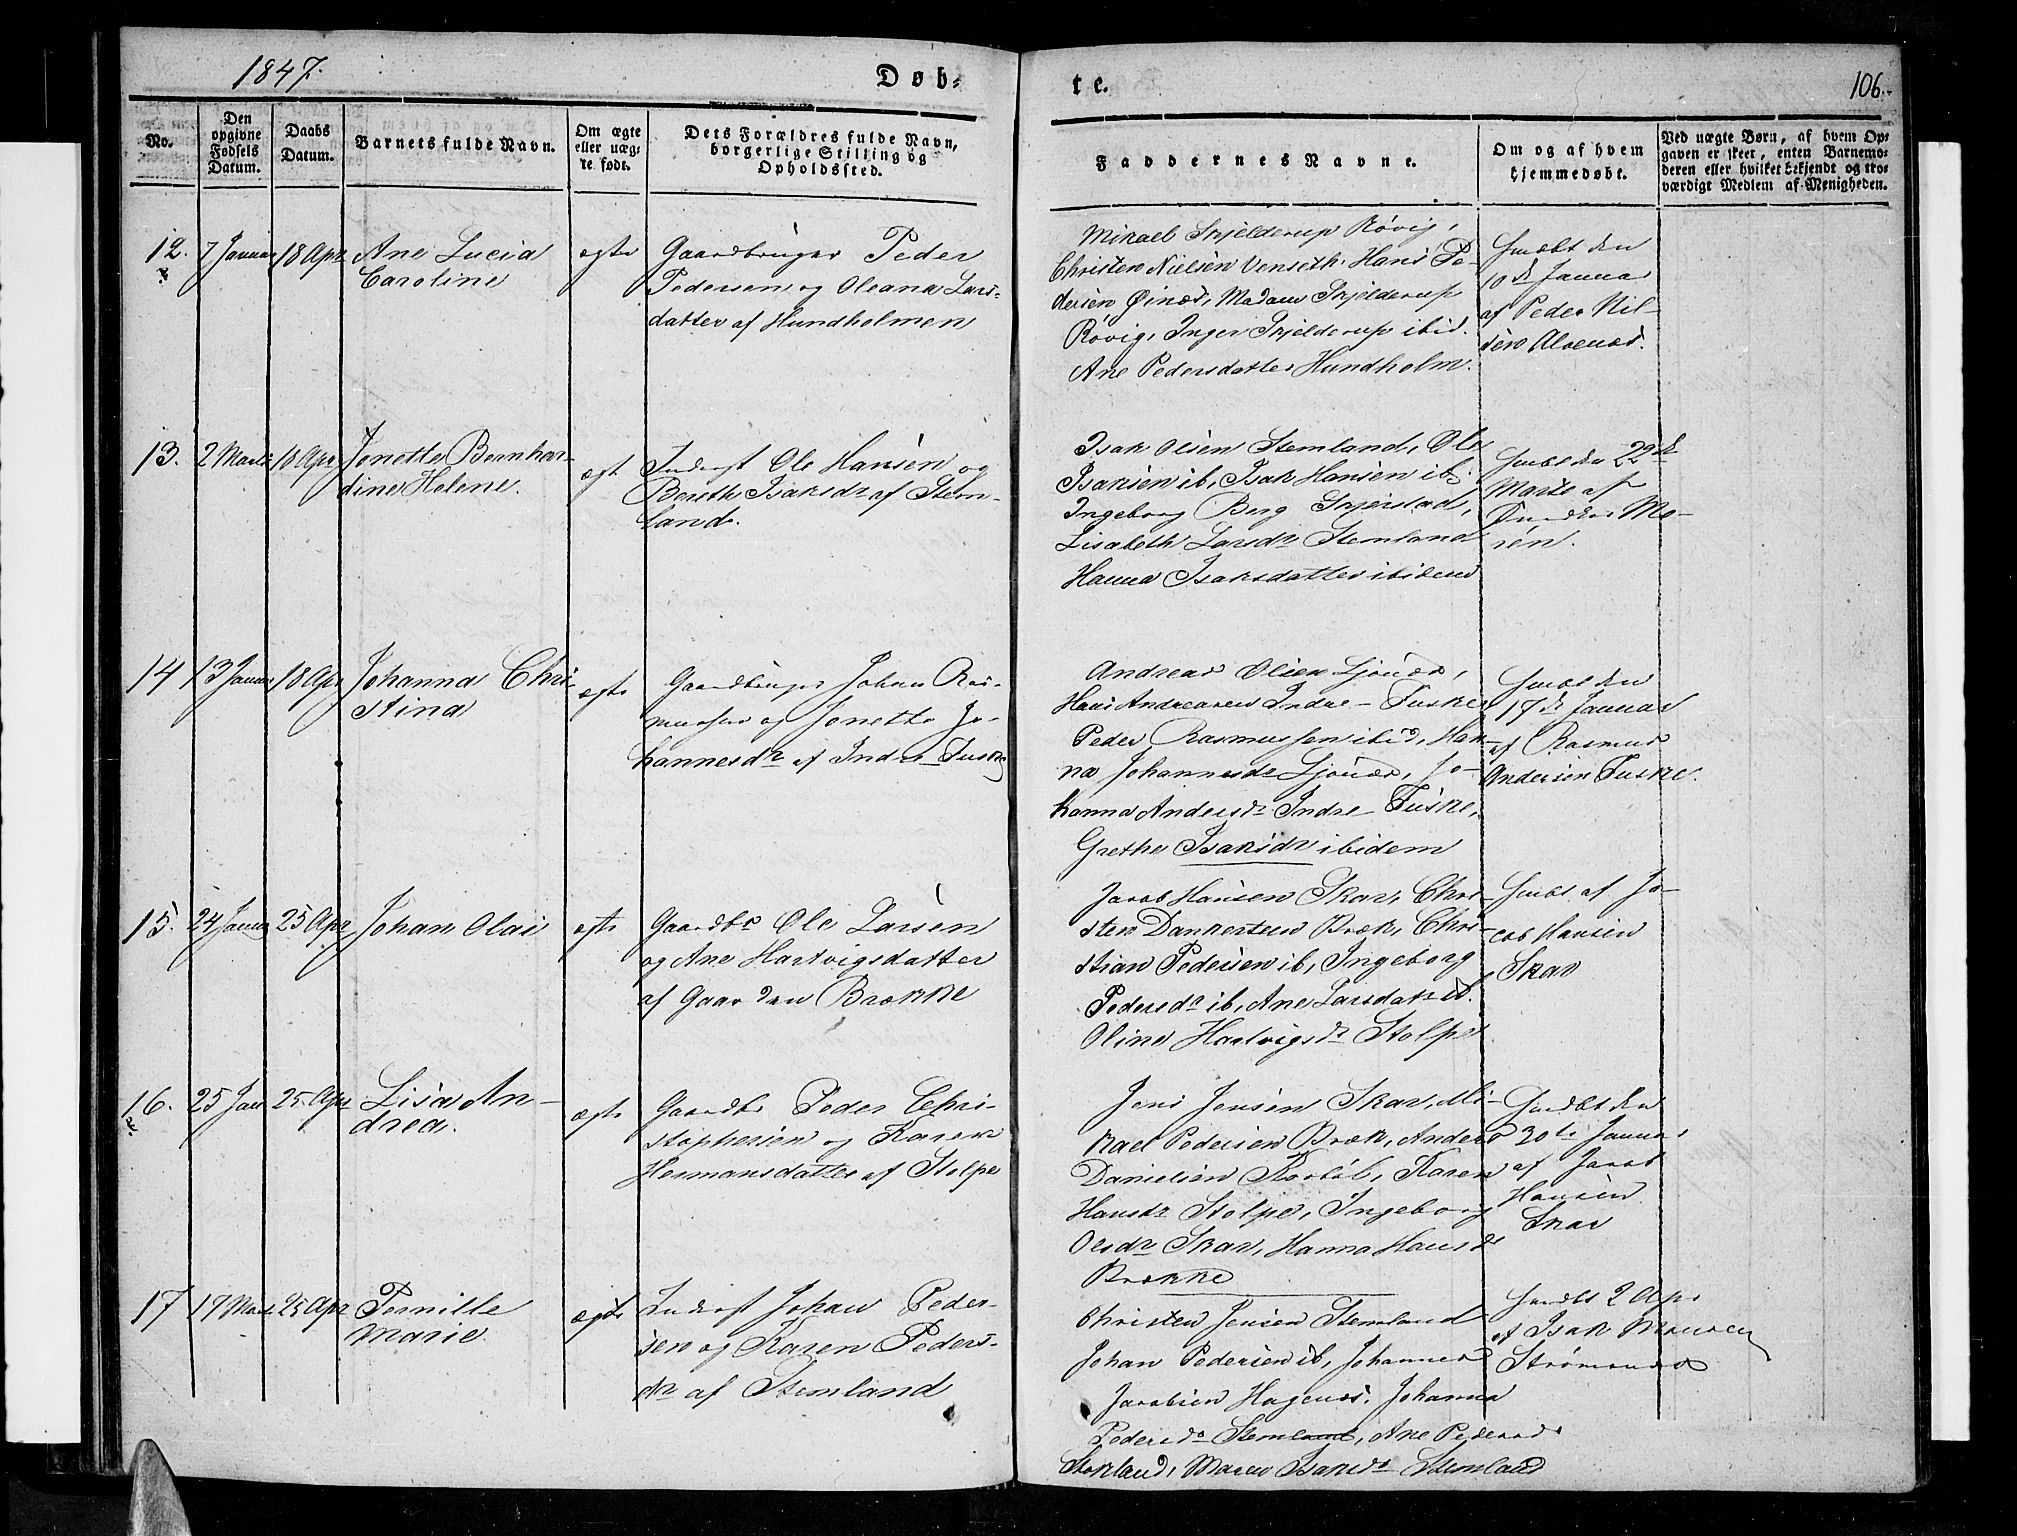 1847.
Døb-
te.
106.
No.
Den opgivne Fødsels Datum.
Daabs Datum.
Barnets fulde Navn.
Om ægte eller uæg-te født.
Dets Forældres fulde Navn, borgerlige Stilling og Opholdssted.
Faddernes Navne.
Om og af hvem hjemmedøbt.
Ved uægte Børn, af hvem Op-gaven er skeet, enten Barnemo-deren eller hvilket bekjendt og tro-værdigt Medlem af Menigheden.
12. 7 Januar 18 Apr Ane Lucia
Caroline
ægte
Gaardbruger Peder
Pedersen og Oleana Lars-
datter af Hundholmen
Mikael Skjelderup Røvig,
Christen Nielsen Venseth. Hans Pe-
dersen Øinæs, Madam Skjelderup
Røvig, Inger Skjelderup ibid.
Ane Pedersdatter Hundholm.
den
10de Januar
af Peder Nil-
sen Alvenæs.
13. 2 Marts 18 Apr Jonette Bernhar-
dine Helene.
ægt
Inderst Ole Hansen og
Bereth Isaksdr af Stem-
land.
Isak Olsen Stemland, Ole
Isaksen ib, Isak Hansen ib,
Ingeborg Berg Skjerstad,
Lisabeth Larsdr Stemland
Hanna Isaksdatter ibidem
22de
Marts af
14 13 Januar 18 Apr Johanna Chri-
stina
ægte
Gaardbruger Johan Ras-
mussen og Jonette Jo-
hannesdr af Indre-Fuske
Andreas Olsen Ljønæs,
Hans Andreasen Indre-Fuske
Peder Rasmussen ibid, Han-
na Johannesdr Ljønæs, Jo-
hanna Andersdr Indre-Fuske,
Grethe Isaksdr ibidem
den
17de Januar
af Rasmus
Andersen Fuske.
15. 24 Januar 25 Apr Johan Olai
ægte
Gaardbr Ole Larsen
og Ane Hartvigsdatter
af Gaarden Brække
Jacob Hansen Skar, Chri-
sten Dankertsen Bræk, Chri-
stian Pedersen ib, Ingeborg
Pedersdr ib, Ane Larsdatr ib.
Oline Hartvigsdr Stolpe
af Ja-
cob Hansen
Skar
16. 25 Jan 25 Apr Lisa An-
drea.
ægte
Gaardbr Peder Chri-
stophersen og Karen
Hermansdatter af Stolpe
Jens Jensen Skar, Mi-
kael Pedersen Bræk, Anders
Danielsen, Karen
Hansdr Stolpe, Ingeborg
Olsdr Skar, Hanna Hansdr
Brække
den
30te Januar
af Jacob
Hansen
Skar
17 17 Marts 25 Apr Pernille
Marie.
ægte
Inderst Johan Peder-
sen og Karen Peders-
dr af Stemland
Christen Jensen Stemland
Johan Pedersen ib, Johannes
Jacobsen Hagenæs. Johanna
Pedersdr Stemland, Ane Pedersdr
Storland, Maren Isaksdr Stemland
2 Apr
af Isak Monsen
Strømsnæs